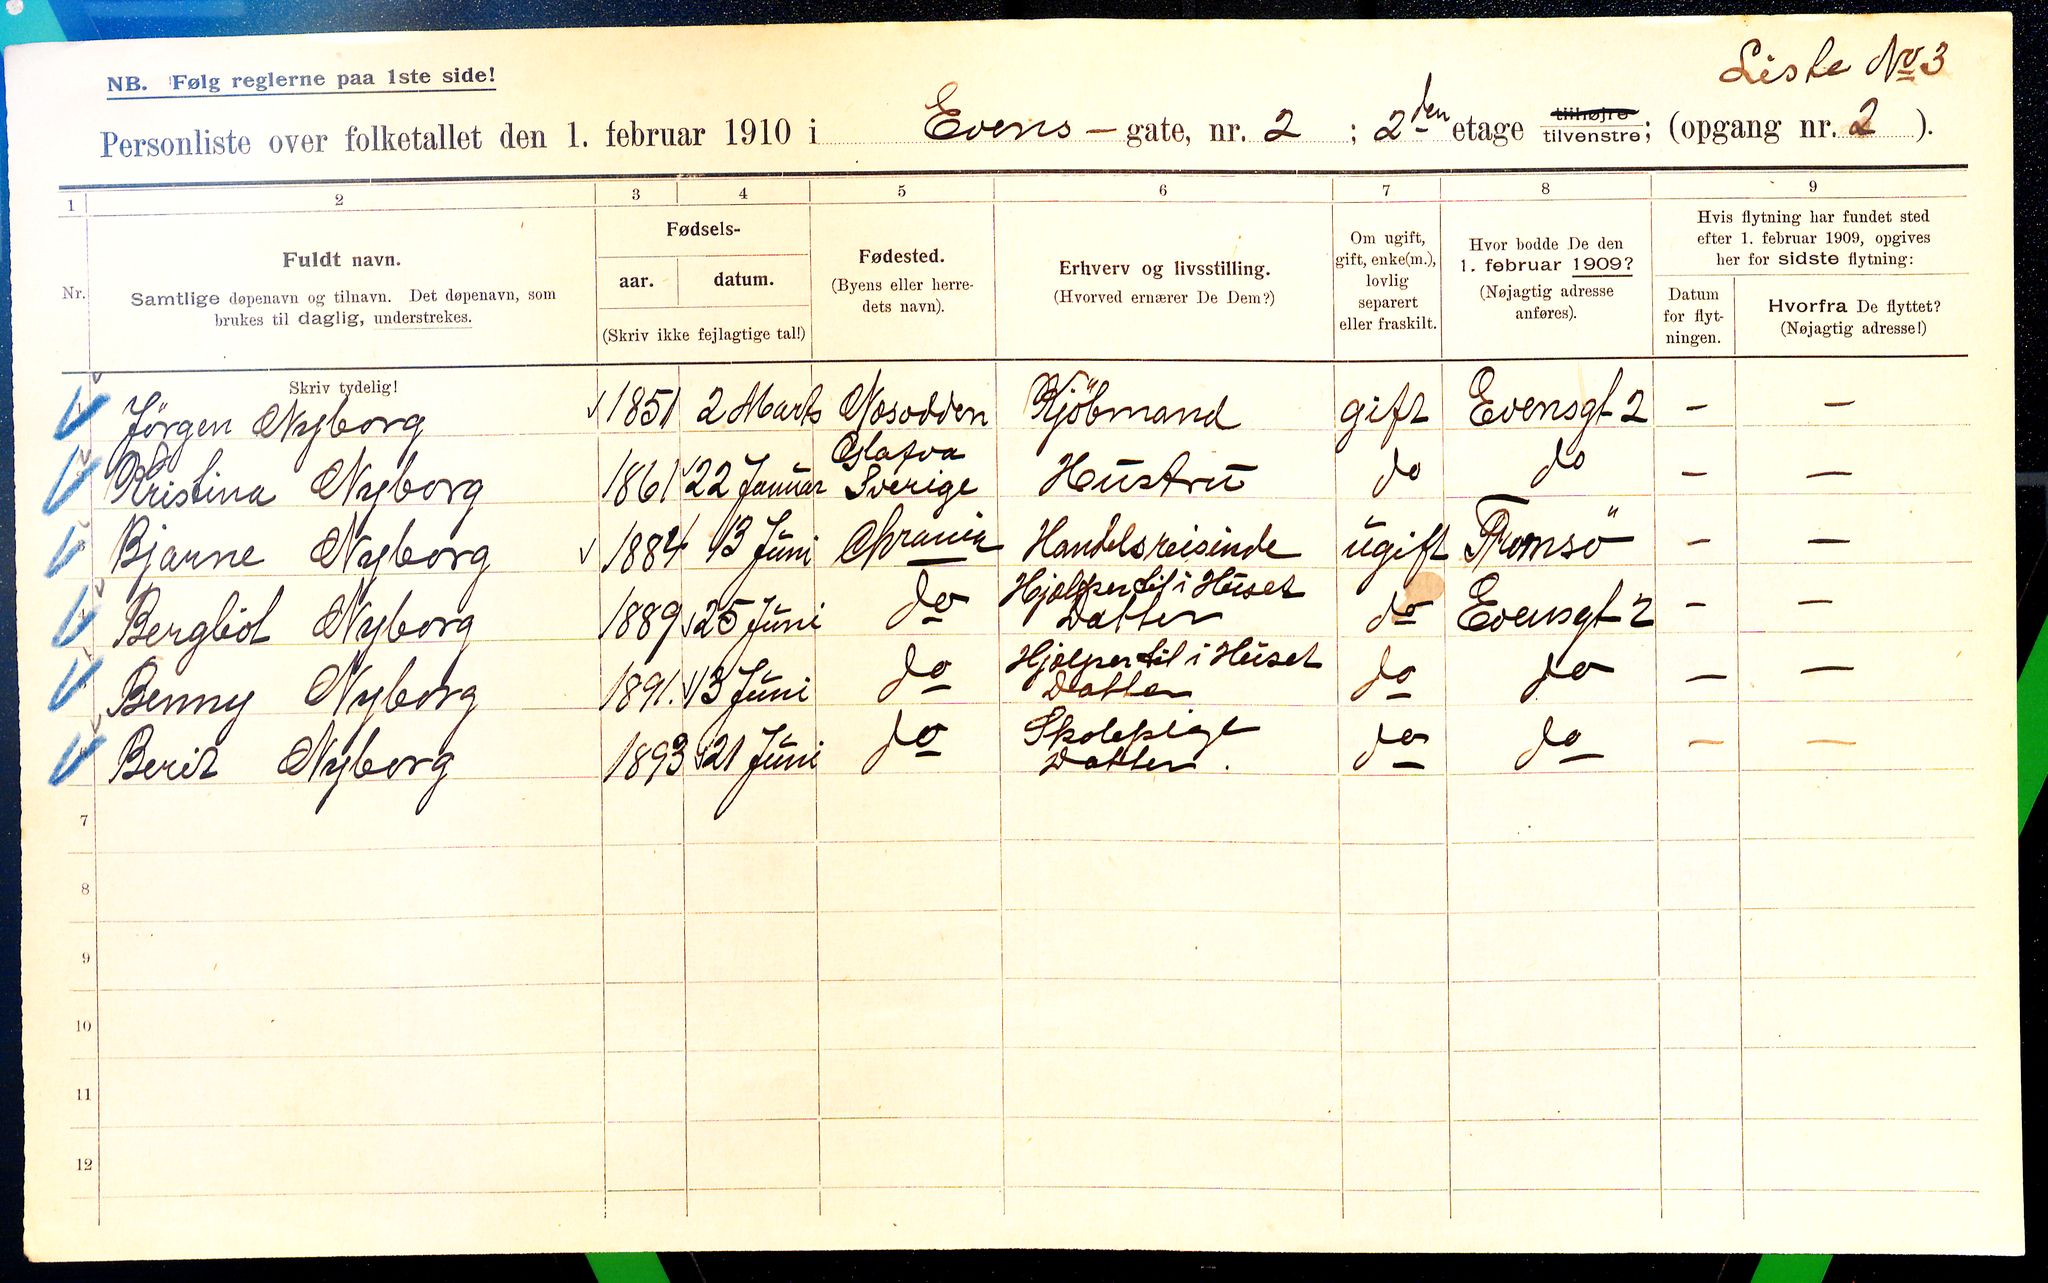 Liste No 3
NB. Følg reglerne paa 1ste side!
Personliste over folketallet den 1. februar 1910 i Evens - gate, nr. 2 ; 2den etage tilhøjre tilvenstre; (opgang nr. 2 ).
1 2 3 4 5 6 7 8 9
Nr.
Fuldt navn.
Samtlige døpenavn og tilnavn. Det døpenavn, som
brukes til daglig, understrekes.
Skriv tydelig!
Fødsels-
aar. datum.
(Skriv ikke fejlagtige tal!)
Fødested.
(Byens eller herre-
dets navn).
Erhverv og livsstilling.
(Hvorved ernærer De Dem?)
Om ugift,
gift, enke(m.),
lovlig
separert
eller fraskilt.
Hvor bodde De den
1. februar 1909?
(Nøjagtig adresse
anføres).
Hvis flytning har fundet sted
efter 1. februar 1909, opgives
her for sidste flytning:
Datum
for flyt-
ningen.
Hvorfra De flyttet?
(Nøjagtig adresse!)
Jørgen Nyborg 1851 2 Marts Næsodden Kjöbmand gift Evensgt 2 — —
Kristina Nyborg 1861 22 Januar Glafva Sverige Hustru do do — —
Bjarne Nyborg 1884 13 Juni Chrania Handelsreisinde ugift Tromsö — —
Bergliot Nyborg 1889 25 Juni do Hjælper til i Huset Datter do Evensgt 2 — —
Benny Nyborg 1891. 13 Juni do Hjælper til i Huset Datter do do — —
Berit Nyborg 1893 21 Juni do Skolepige Datter. do do — —
7
8
9
10
11
12